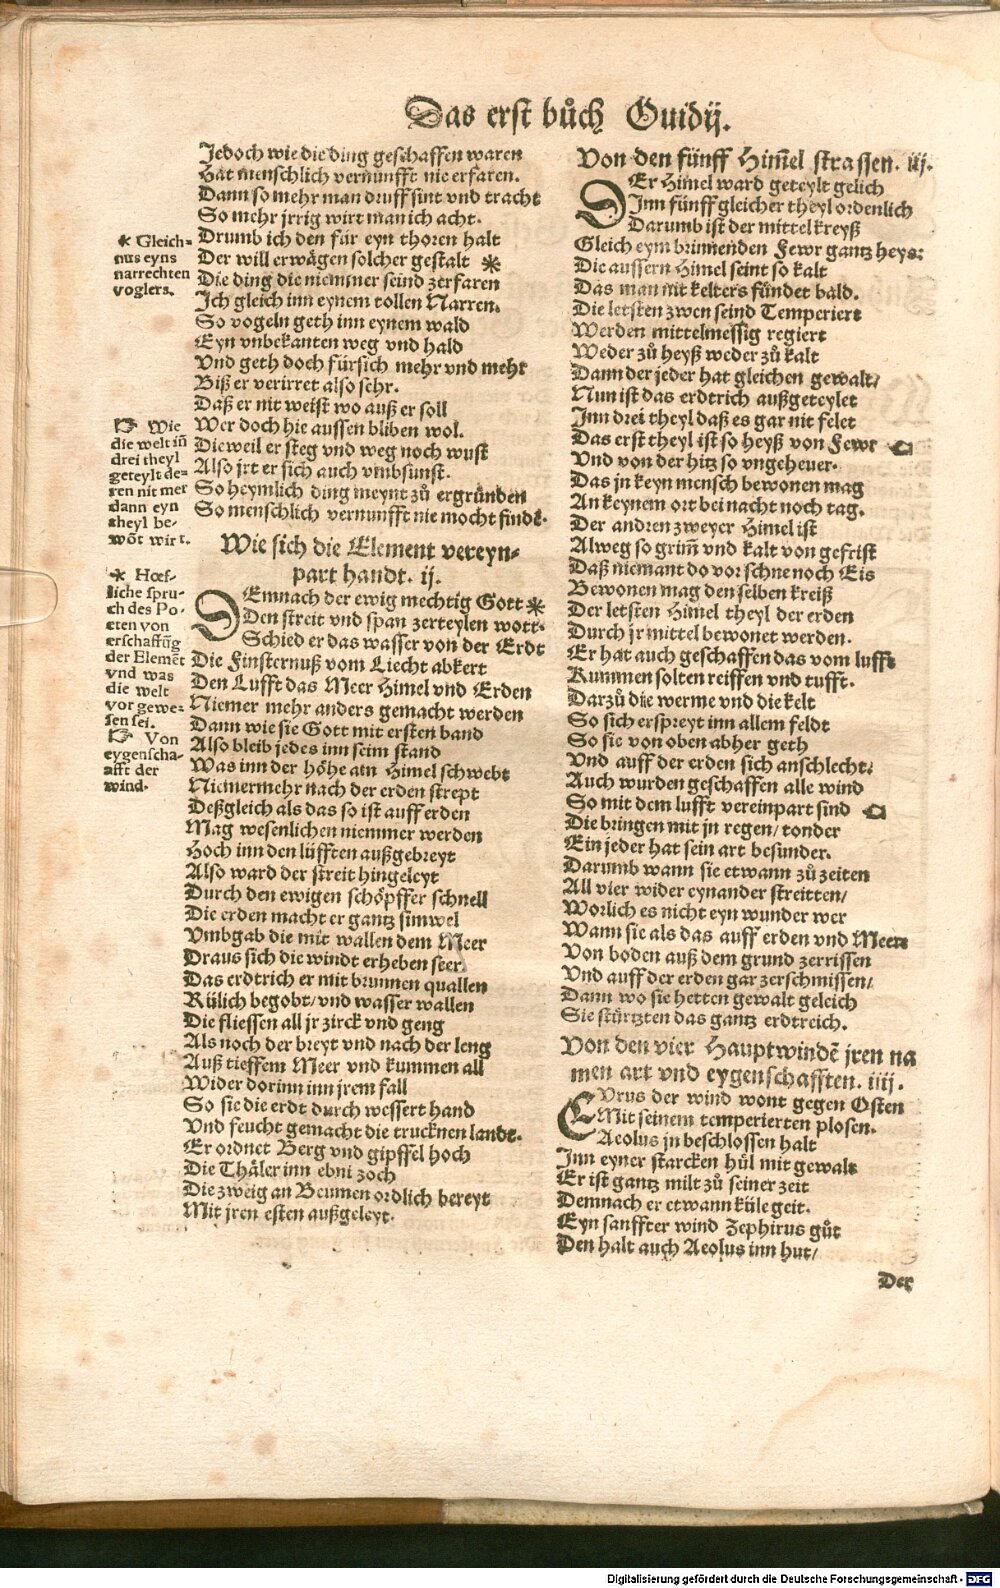 Das erst bůch Ouidij.
Jedoch wie die ding geschaffen waren
Hat menschlich vernunfft nie erfaren.
Dann so mehr man druff sint vnd tracht
So mehr jrrig wirt man ich acht.
Drumb ich den für eyn thoren halt
Der will erwägen solcher gestalt *
Die ding die niemsner seind zerfaren
Ich gleich inn eynem tollen Narren.
So vogeln geth inn eynem wald
Eyn vnbekanten weg vnd hald
Vnd geth doch fürsich mehr vnd mehr
Biß er verirret also sehr.
Daß er nit weist wo auß er soll
Wer doch hie aussen bliben wol.
Dieweil er steg vnd weg noch wust
Also jrt er sich auch vmbsunst.
So heymlich ding meynt zů ergründen
So menschlich vernunfft nie mocht findē.
* Gleich-
nus eyns
narrechten
voglers.
☞ Wie
die welt iñ
drei theyl
geteylt de-
ren nit mer
dann eyn
theyl be-
wõt wirt.
Wie sich die Element vereyn-
part handt. ij.
DEmnach der ewig mechtig Gott *
Den streit vnd span zerteylen wott.
Schied er das wasser von der Erdt
Die Finsternuß vom Liecht abkert
Den Lufft das Meer Himel vnd Erden
Niemer mehr anders gemacht werden
Dann wie sie Gott mit ersten band
Also bleib jedes inn seim stand
Was inn der höhe am Himel schwebt
Niemermehr nach der erden strept
Deßgleich als das so ist auff erden
Mag wesenlichen niemmer werden
Hoch inn den lüfften außgebreyt
Also ward der streit hingeleyt
Durch den ewigen schöpffer schnell
Die erden macht er gantz simwel
Vmbgab die mit wallen dem Meer
Draus sich die windt erheben seer
Das erdtrich er mit brunnen quallen
Rülich begobt/ vnd wasser wallen
Die fliessen all jr zirck vnd geng
Als noch der breyt vnd nach der leng
Auß tieffem Meer vnd kummen all
Wider dorinn inn jrem fall
So sie die erdt durch wessert hand
Vnd feucht gemacht die trucknen landt.
Er ordnet Berg vnd gipffel hoch
Die Thäler inn ebni zoch
Die zweig an Beumen ordlich bereyt
Mit jren esten außgeleyt.
* Hœf-
liche spru-
ch des Po-
eten von
erschaffũg
der Elemẽt
vnd was
die welt
vor gewe-
sen sei.
☞ Von
eygenscha-
afft der
wind.
Von den fünff Him̃el strassen. iij.
DEr Himel ward geteylt gelich
Inn fünff gleicher theyl ordenlich
Darumb ist der mittel kreyß
Gleich eym brinnenden Fewr gantz heys:
Die aussern Himel seint so kalt
Das man nit kelters fündet bald.
Die letsten zwen seind Temperiert
Werden mittelmessig regiert
Weder zů heyß weder zů kalt
Dann der jeder hat gleichen gewalt/
Nun ist das erdtrich außgeteylet
Inn drei theyl daß es gar nit felet
Das erst theyl ist so heyß von Fewr ☜
Vnd von der hitz so vngeheuer.
Das jn keyn mensch bewonen mag
An keynem ort bei nacht noch tag.
Der andren zweyer Himel ist
Alweg so grim̃ vnd kalt von gefrist
Daß niemant do vor schne noch Eis
Bewonen mag den selben kreiß
Der letsten Himel theyl der erden
Durch jr mittel bewonet werden.
Er hat auch geschaffen das vom lufft
Kummen solten reiffen vnd tufft.
Darzů die werme vnd die kelt
So sich erspreyt inn allem feldt
So sie von oben abher geth
Vnd auff der erden sich anschlecht.
Auch wurden geschaffen alle wind
So mit dem lufft vereinpart sind ☜
Die bringen mit jn regen/ tonder
Ein jeder hat sein art besunder.
Darumb wann sie etwann zů zeiten
All vier wider eynander streitten/
Worlich es nicht eyn wunder wer
Wann sie als das auff erden vnd Meer
Von boden auß dem grund zerrissen
Vnd auff der erden gar zerschmissen/
Dann wo sie hetten gewalt geleich
Sie stürtzten das gantz erdtreich.
Von den vier Hauptwindē jren na
men art vnd eygenschafften. iiij.
EVrus der wind wont gegen Osten
Mit seinem temperierten plosen.
Aeolus jn beschlossen halt
Inn eyner starcken hül mit gewalt
Er ist gantz milt zů seiner zeit
Demnach er etwann küle geit.
Eyn sanffter wind Zephirus gůt
Den halt auch Aeolus inn hut/
Der
Digitalisierung gefördert durch die Deutsche Forschungsgemeinschaft - DFG